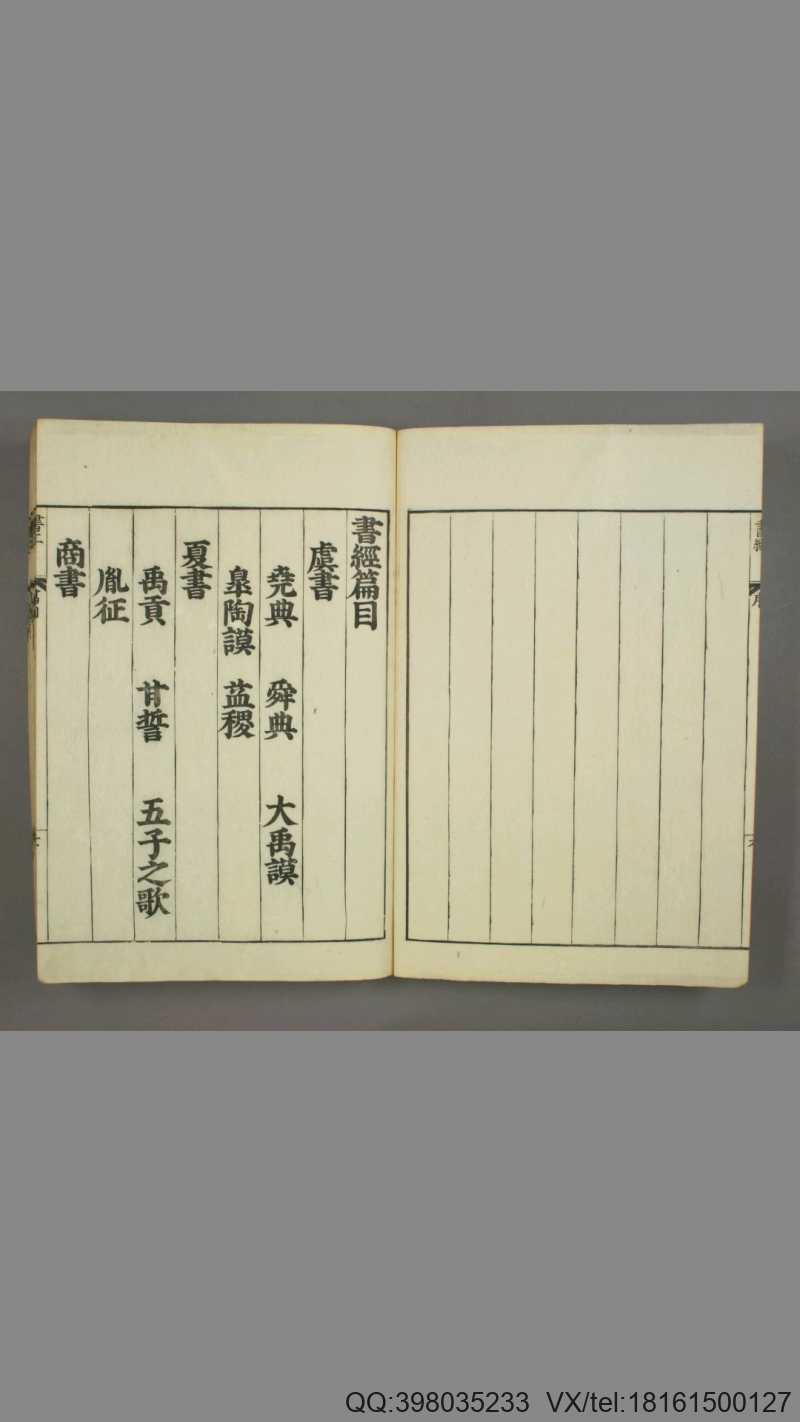 書經篇目
虞書
堯典 舜典 大禹謨
皐陶謨 益稷
夏書
禹貢 甘誓 五子之歌
胤征
商書
QQ:398035233 VX/tel:18161500127